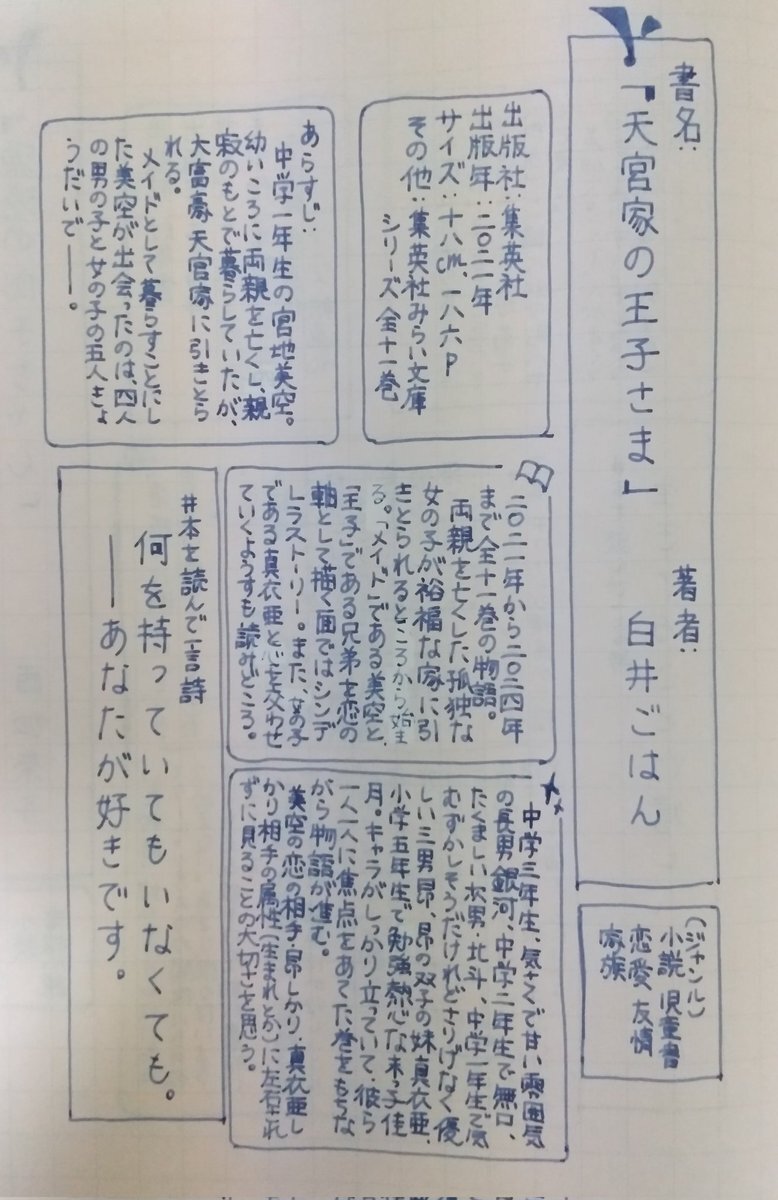 書名:
『天宮家の王子さま』
著者:
白井ごはん
(ジャンル)
小説 児童書
恋愛 友情
家族
出版社:集英社
出版年:二〇二一年
サイズ:十八cm、一八六P
その他:集英社みらい文庫
シリーズ 全十一巻
あらすじ:
中学一年生の宮地美空。
幼いころに両親を亡くし、親
寂のもとで暮らしていたが、
大富豪 天宮家に引きとら
れる。
メイドとして暮らすことにし
た美空が出会ったのは、四人
の男の子と女の子の五人きょ
うだいで――。
二〇二一年から二〇二四年
まで全十一巻の物語。
両親を亡くした孤独な
女の子が裕福な家に引
きとられるところから始ま
る。「メイド」である美空と、
「王子」である兄弟を恋の
軸として描く面ではシンデ
レラストーリー。また、女の子
である真衣亜と心を交わせ
ていくようすも読みどころ。
中学三年生、気さくで甘い雰囲気
の長男銀河、中学二年生で無口、
たくましい次男・北斗、中学一年生で気
むずかしそうだけれどさりげなく優
しい三男昴、昴の双子の妹真衣亜、
小学五年生で勉強熱心な末っ子佳
月。キャラがしっかり立っていて、彼ら
一人一人に焦点をあてた巻をもちな
がら物語が進む。
美空の恋の相手・昴しかり、真衣亜し
かり相手の属性(生まれとか)に左右され
ずに見ることの大切さを思う。
#本を読んで一言詩
何を持っていてもいなくても。
――あなたが好きです。